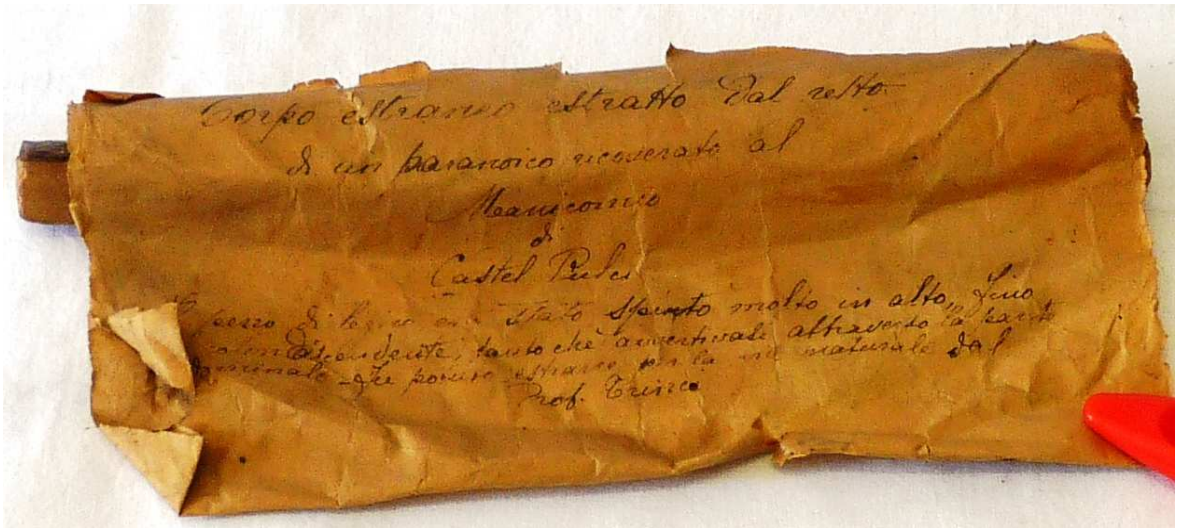 Corpo estraneo estratto dal retto
di un paranoico ricoverato al
Manicomio
di
Castel Pulci
pezzo di legno era stato spinto molto in alto, fino
discendente, tanto che avvertivasi attraverso la parete
Fu potuto estrarre per la via naturale dal
Prof. Trinci